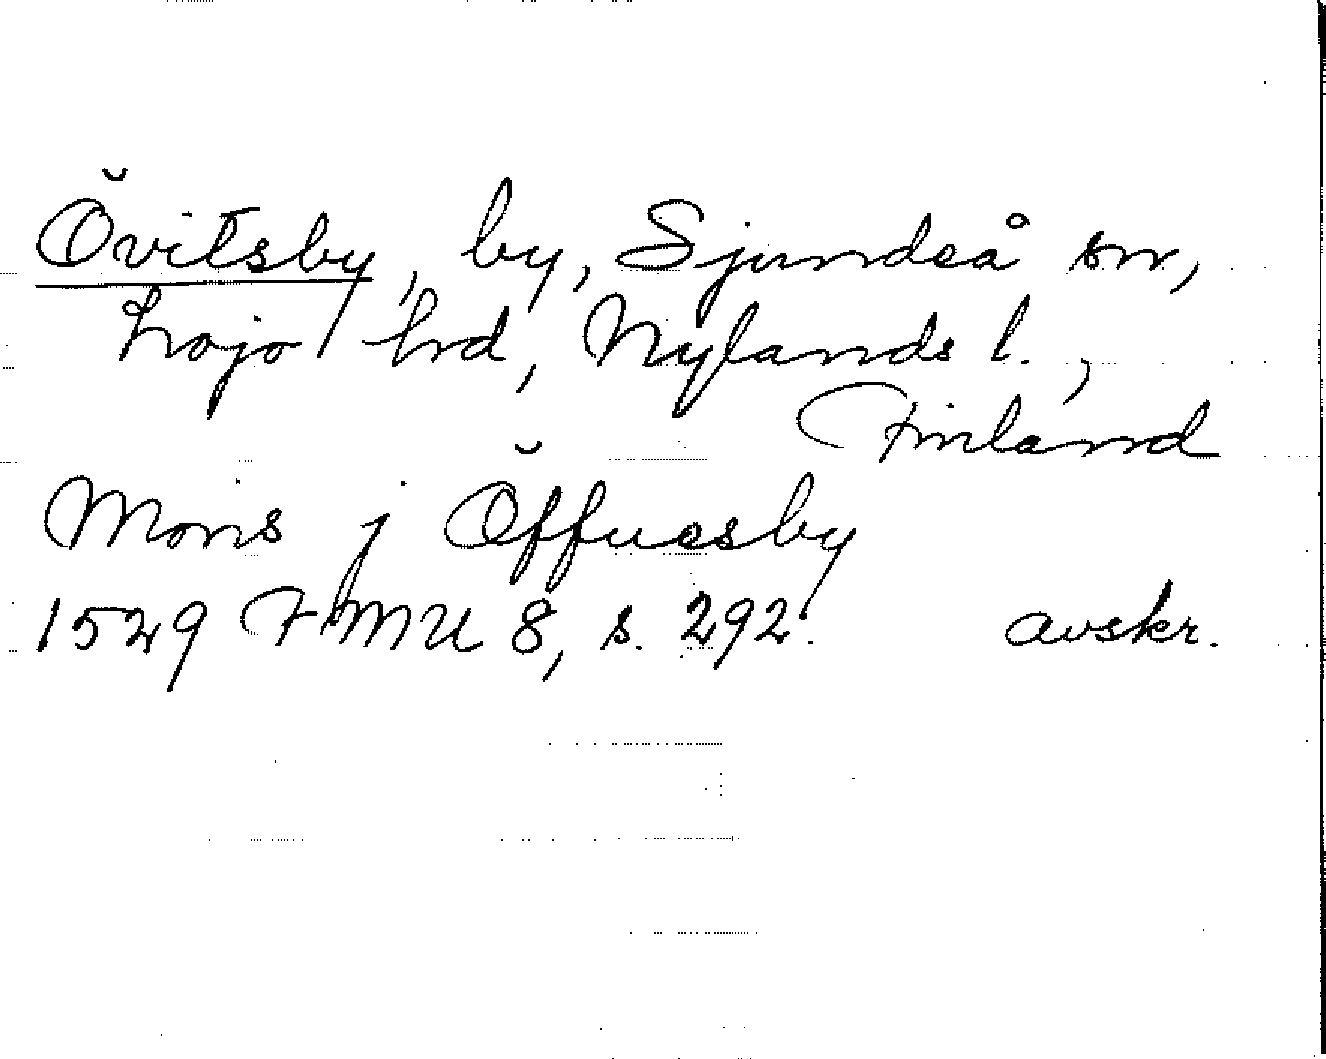 Övitsby, by, Sjundeå sn,
Lojo hrd, Nylands l.,
Finland
Mons j Öffuesby
1529 FMU 8, s. 292. avskr.